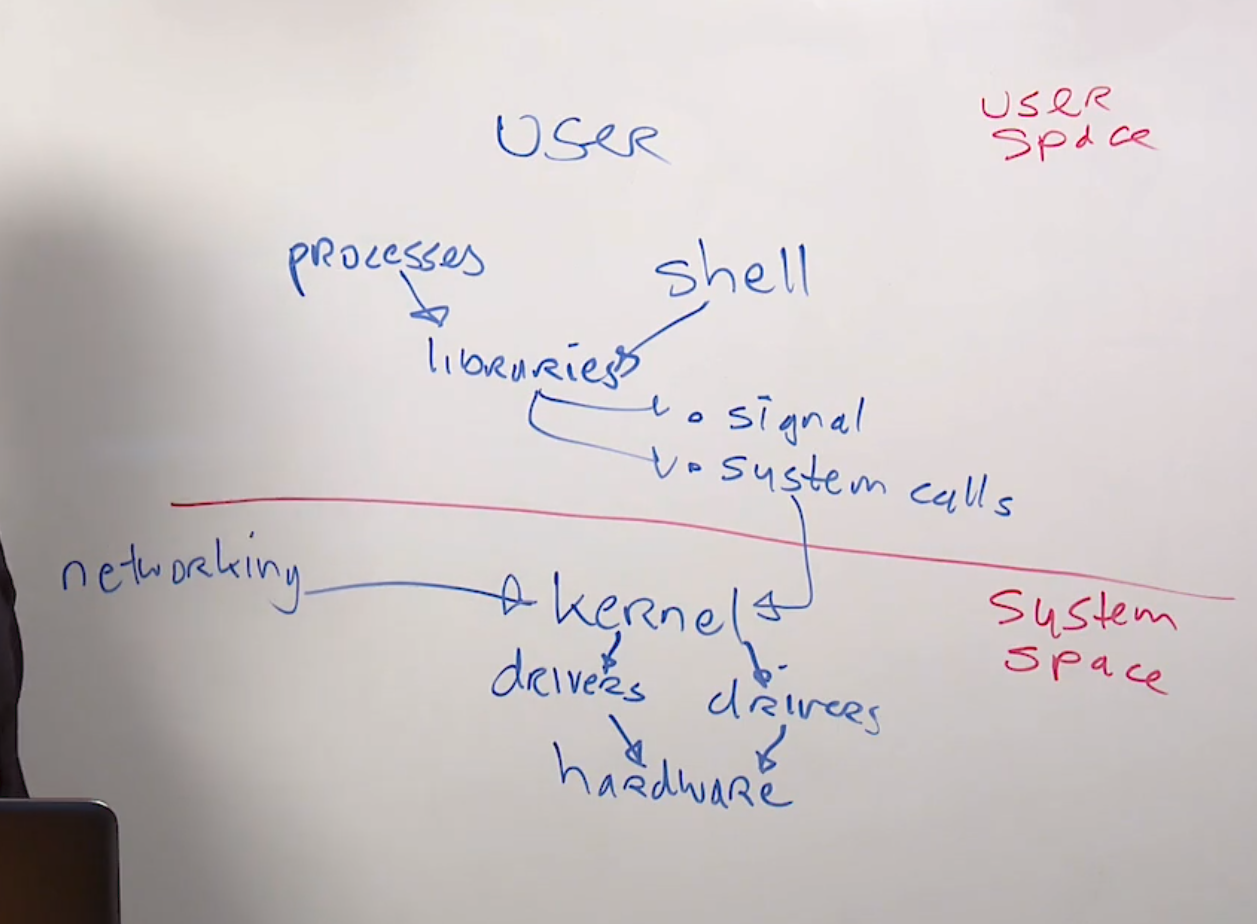 user
user
space
processes
shell
libraries
• signal
• system calls
networking
kernel
system
space
drivers
drivers
hardware